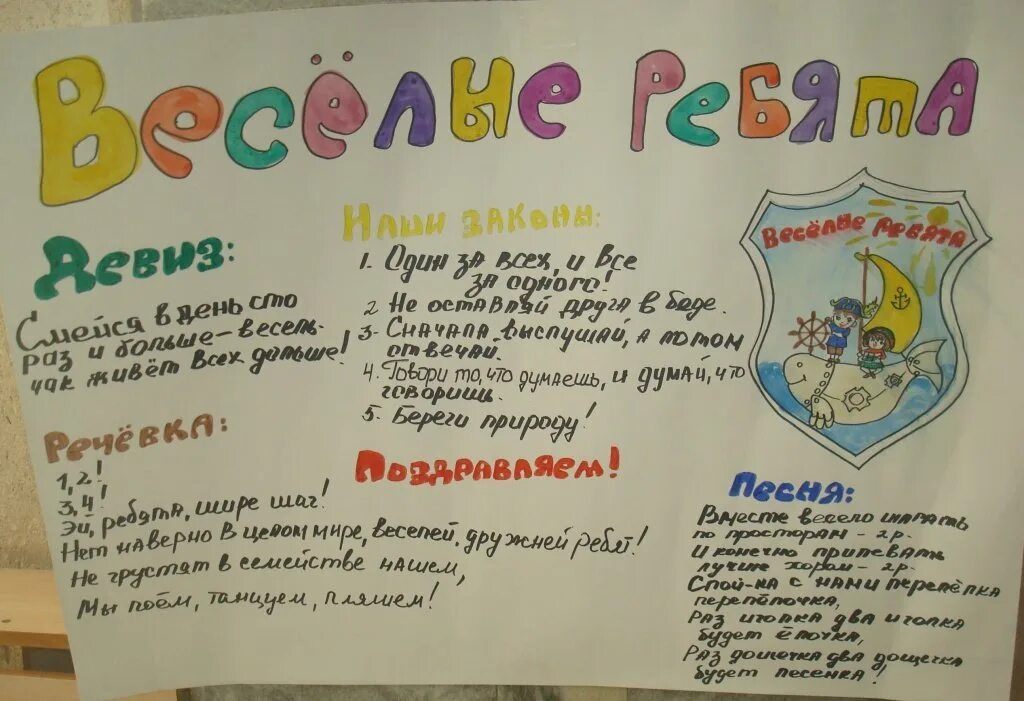 Весёлые ребята
Девиз:
Смейся в день сто
раз и больше – весель-
чак живёт всех дольше!
Речёвка:
1,2!
3,4!
Эй, ребята, шире шаг!
Нет наверно в целом мире, веселей, дружней ребят!
Не грустят в семействе нашем,
Мы поём, танцуем, пляшем!
Наши законы:
1. Один за всех, и все
за одного!
2 Не оставляй друга в беде.
3. Сначала выслушай, а потом
отвечай.
4. Говори то, что думаешь, и думай, что
говоришь.
5. Береги природу!
Поздравляем!
Весёлые ребята
Песня:
Вместе весело шагать
по просторам – 2р.
И конечно припевать
лучше хором – 2р.
Спой-ка с нами перепёлка
перепёлочка,
Раз иголка два иголка
будет ёлочка,
Раз дощечка два дощечка
будет песенка!